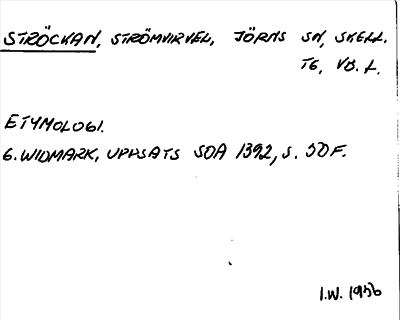 STRÖCKAN, STRÖMVIRVEL, JÖRNS SN, SKELL.
TG, VB. L.
ETYMOLOGI.
G. WIDMARK, UPPSATS SOA 1392, S. 50 F.
I.W. 1956